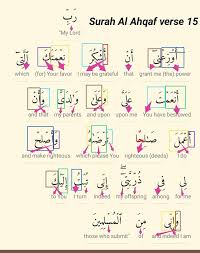 رَبِّ
Surah Al Ahqaf verse 15
"My Lord
أَوْزِعْنِىٓ أَنْ أَشْكُرَ نِعْمَتَكَ ٱلَّتِىٓ
which (for) Your favor I may be grateful that grant me (the) power
أَنْعَمْتَ عَلَىَّ وَعَلَىٰ وَٰلِدَىَّ وَأَنْ
and that my parents and upon upon me You have bestowed
أَعْمَلَ صَٰلِحًا تَرْضَىٰهُ وَأَصْلِحْ
and make righteous which please You righteous (deeds) I do
لِى فِى ذُرِّيَّتِىٓ إِنِّى تُبْتُ إِلَيْكَ
to You I turn indeed my offspring among for me
وَإِنِّى مِنَ ٱلْمُسْلِمِينَ
those who submit" of and indeed I am